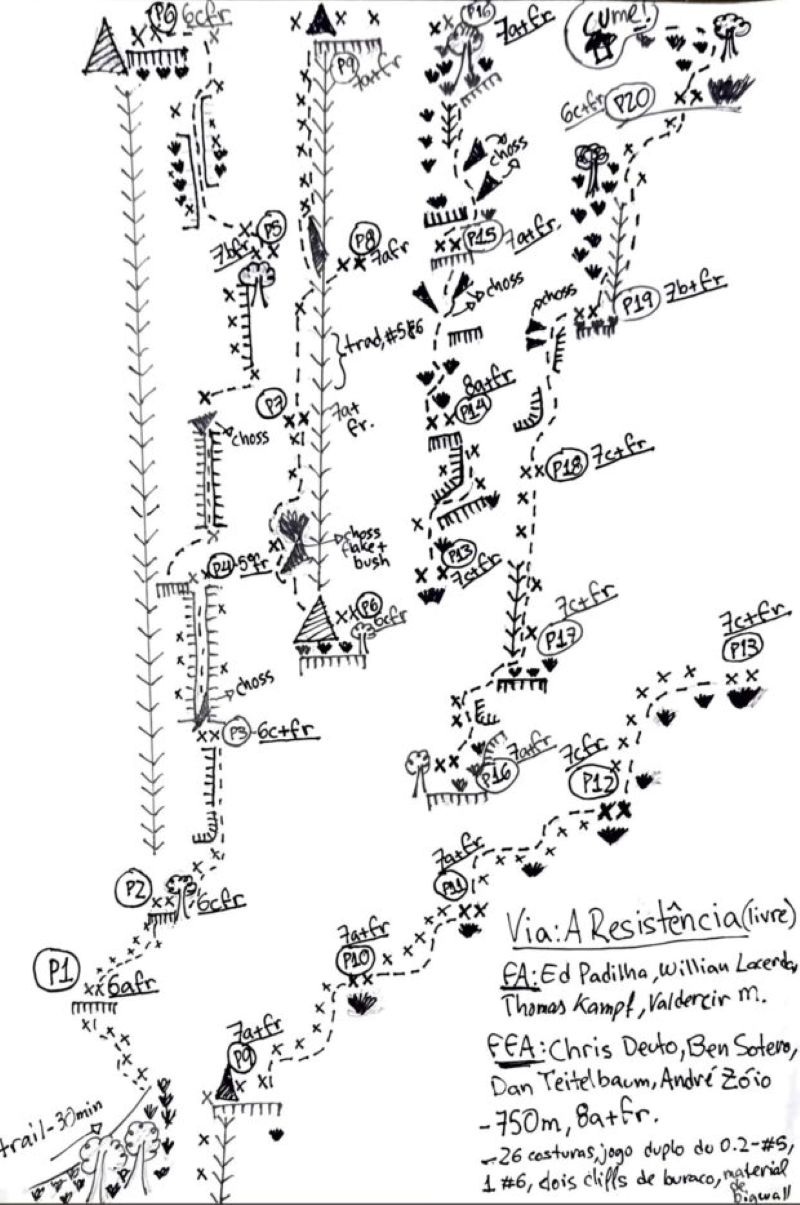 P6 6cfr
P9
7a+fr
P16
7a+fr
Cume!
6c+fr P20
choss
P5
7bfr
P8
7afr
P15
7a+fr
choss
choss
P19 7b+fr
trad, #5&6
8a+fr
P14
P7
7a+
fr.
choss
P18 7c+fr
P4-5ºfr
choss
flake+
bush
P13
7c+fr
P6
6cfr
7c+fr
P17
7c+fr
P13
choss
P3-6c+fr
7a+fr
P16
7cfr
P12
7a+fr
P11
P2
6cfr
Via: A Resistência (livre)
FA: Ed Padilha, Willian Lacerda,
Thomas Kampf, Valdercir M.
7a+fr
P10
P1
6afr
FFA: Chris Deuto, Ben Sotero,
Dan Teitelbaum, André Zóio
7a+fr
P9
-750m, 8a+fr.
trail-30min
-26 costuras, jogo duplo do 0.2-#5,
1 #6, dois cliffs de buraco, material
de
bigwall